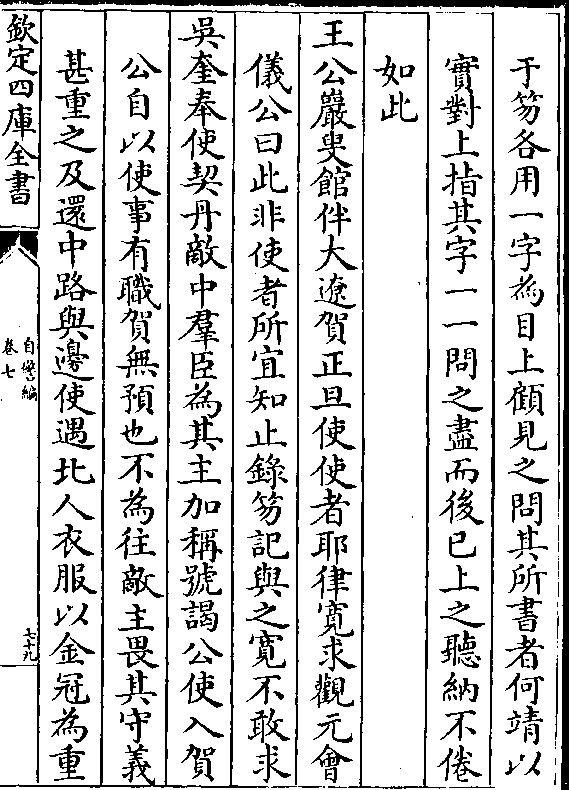 于笏各用一字為目上顧見之問其所書者何靖以
實對上指其字一一問之盡而後已上之聽納不倦
如此
王公巖叟館伴大遼賀正旦使使者耶律寛求觀元會
儀公曰此非使者所宜知止錄笏記與之寛不敢求
吳奎奉使契丹敵中羣臣為其主加稱號謁公使入賀
公自以使事有職賀無預也不為往敵主畏其守義
甚重之及還中路與邊使遇北人衣服以金冠為重
欽定四庫全書
自警編
卷七
七十九